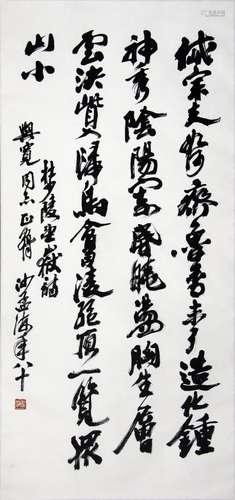 岱宗夫如何齊魯青未了造化鍾
神秀陰陽割昏曉盪胸生層
雲決眥入歸鳥會當凌絕頂一覽眾
山小
杜陵望嶽詩
興寬同志正 沙孟海年八十